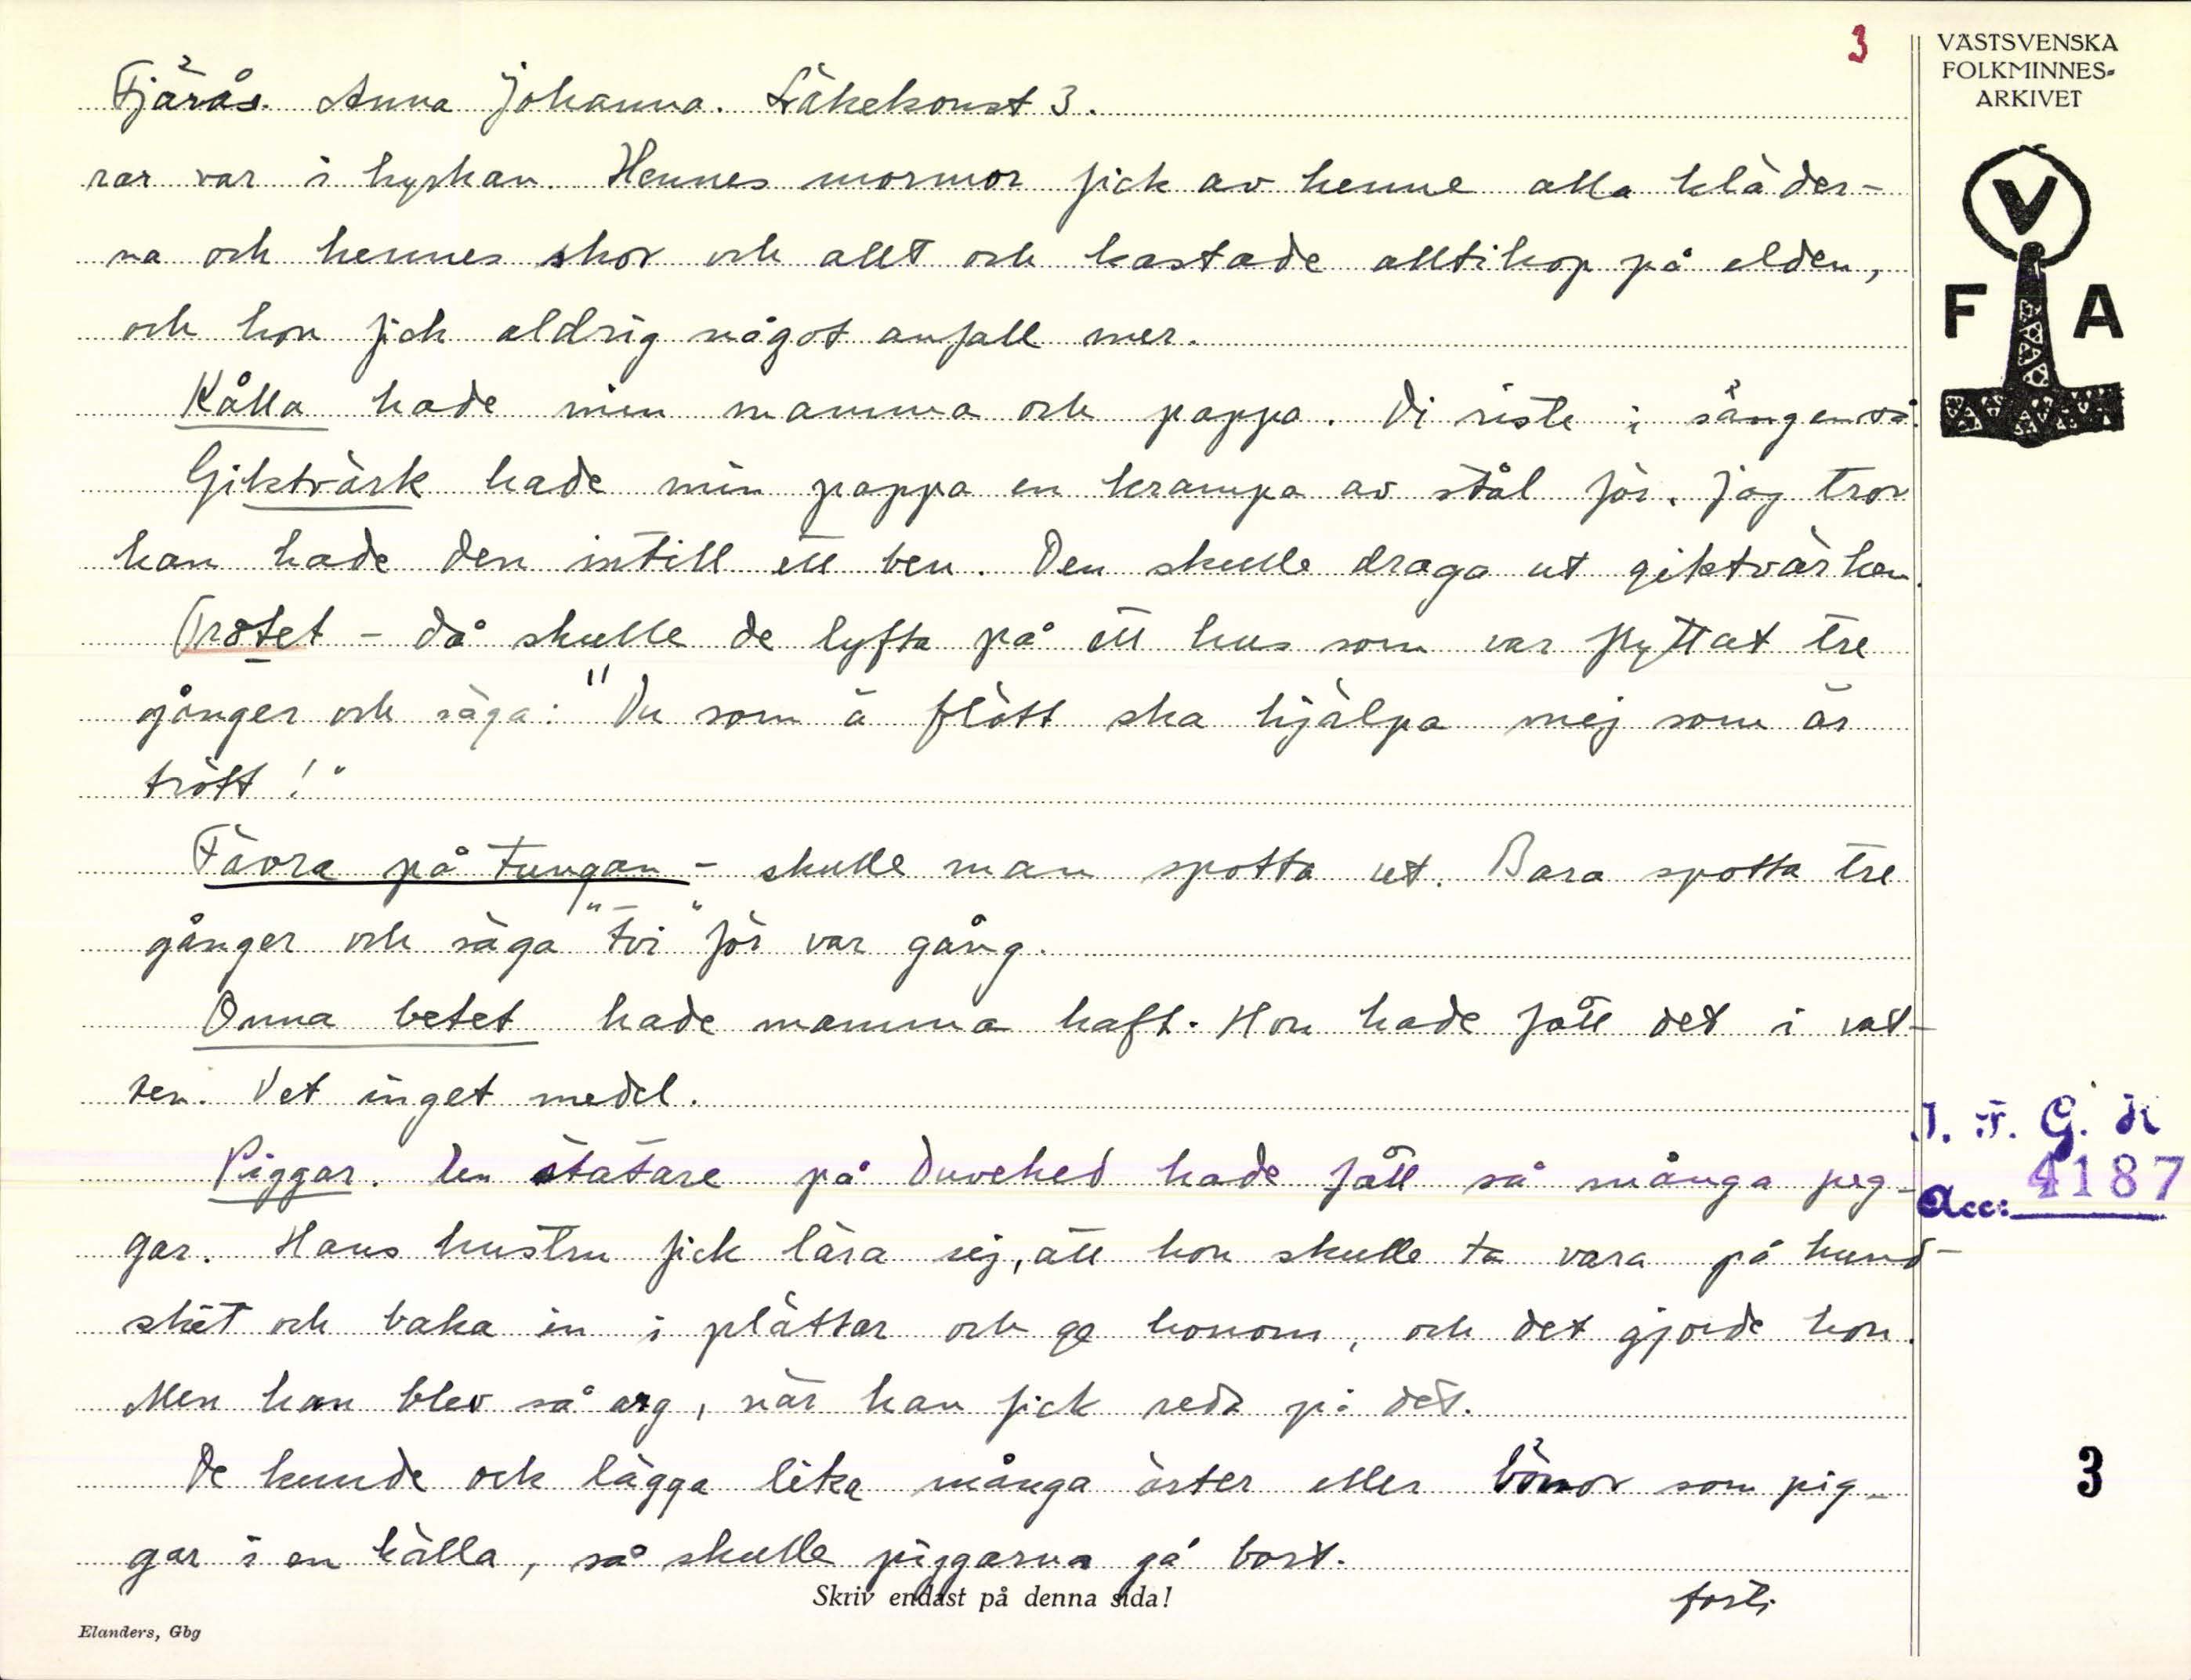 3
VÄSTSVENSKA
FOLKMINNES-
ARKIVET
V
F A
Fjärås. Anna Johanna. Läkekonst 3.
rar var i kyrkan. Hennes mormor fick av henne alla kläder-
na och hennes skor och allt och kastade alltihop på elden,
och hon fick aldrig något anfall mer.
Kålla hade min mamma och pappa. Di riste i sängen så.
Giktvärk hade min pappa en krampa av stål för. Jag tror
han hade den intill ett ben. Den skulle draga ut giktvärken.
Trötet - då skulle de lyfta på ett hus som var flyttat tre
gånger och säga: "Du som ä flött ska hjälpa mej som är
trött!"
Fävra på tungan - skulle man spotta ut. Bara spotta tre
gånger och säga "tvi" för var gång.
Onna betet hade mamma haft. Hon hade fått det i vat-
ten. Vet inget medel.
Piggar. En statare på Duvehed hade fått så många pig-
gar. Hans hustru fick lära sej, att hon skulle ta vara på hund-
skit och baka in i plättar och ge honom, och det gjorde hon.
Men han blev så arg, när han fick reda på det.
De kunde och lägga lika många ärter eller bönor som pig-
gar i en källa, så skulle piggarna gå bort.
forts.
I. F. G. H
Acc: 4187
3
Skriv endast på denna sida!
Elanders, Gbg